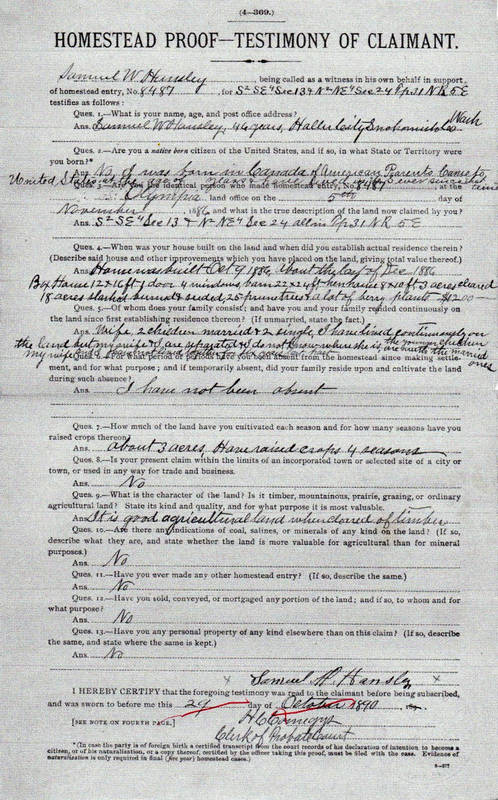 (4—369.)
HOMESTEAD PROOF—TESTIMONY OF CLAIMANT.
Samuel W Hansley, being called as a witness in his own behalf in support
of homestead entry, No. 8487, for S² SE⁴ Sec 13 & N² NE⁴ Sec 24 Tp 31 N R 5 E
testifies as follows:
Ques. 1.—What is your name, age, and post office address?
Ans. Samuel W Hansley, 46 years, Haller City Snohomish Co Wash
Ques. 2.—Are you a native born citizen of the United States, and if so, in what State or Territory were
you born?*
Ans. No I was born in Canada of American Parents Came to
United States at the age of years and ever since
Ques. 3.—Are you the identical person who made homestead entry, No. 8487, at the
Olympia land office on the 5th day of
November, 1886 and what is the true description of the land now claimed by you?
Ans. S² SE⁴ Sec 13 & N² NE⁴ Sec 24 all in Tp 31 N R 5 E
Ques. 4.—When was your house built on the land and when did you establish actual residence therein?
(Describe said house and other improvements which you have placed on the land, giving total value thereof.)
Ans. Home was built Oct 9 1886, about the 1 day of Dec 1886
Box House 12 x 16 ft 1 door 4 windows barn 22 x 24 ft hen house 8 x 10 ft 3 acres cleared
18 acres slashed burned & seeded, 25 prune trees & a lot of berry plants $1200—
Ques. 5.—Of whom does your family consist; and have you and your family resided continuously on
the land since first establishing residence thereon? (If unmarried, state the fact.)
Ans. Wife, 2 children married & 2 single, I have lived continuously on
the land but my wife & I are separated & I do not know where she is the younger children
are with the married ones
my wife
from the homestead since making settle-
ment, and for what purpose; and if temporarily absent, did your family reside upon and cultivate the land
during such absence?
Ans. I have not been absent
Ques. 7.—How much of the land have you cultivated each season and for how many seasons have you
raised crops thereon?
Ans. About 3 acres, Have raised crops 4 seasons
Ques. 8.—Is your present claim within the limits of an incorporated town or selected site of a city or
town, or used in any way for trade and business.
Ans. No
Ques. 9.—What is the character of the land? Is it timber, mountainous, prairie, grazing, or ordinary
agricultural land? State its kind and quality, and for what purpose it is most valuable.
Ans. It is good agricultural land when cleared of timber
Ques. 10.—Are there any indications of coal, salines, or minerals of any kind on the land? (If so,
describe what they are, and state whether the land is more valuable for agricultural than for mineral
purposes.)
Ans. No
Ques. 11.—Have you ever made any other homestead entry? (If so, describe the same.)
Ans. No
Ques. 12.—Have you sold, conveyed, or mortgaged any portion of the land; and if so, to whom and for
what purpose?
Ans. No
Ques. 13.—Have you any personal property of any kind elsewhere than on this claim? (If so, describe
the same, and state where the same is kept.)
Ans. No
x Samuel W Hansley x
I HEREBY CERTIFY that the foregoing testimony was read to the claimant before being subscribed,
and was sworn to before me this 29 day of October 1890
[SEE NOTE ON FOURTH PAGE.]
Clerk of Probate Court
*(In case the party is of foreign birth a certified transcript from the court records of his declaration of intention to become a
citizen, or of his naturalization, or a copy thereof, certified by the officer taking this proof, must be filed with the case. Evidence of
naturalization is only required in final (five year) homestead cases.)